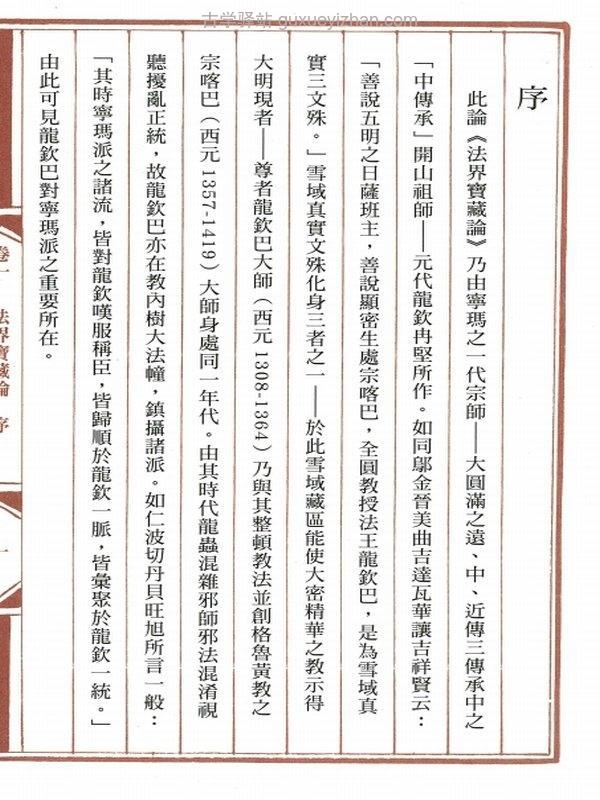 古学驿站 guxueyizhan.com
序
此論《法界寶藏論》乃由寧瑪之一代宗師——大圓滿之遠、中、近傳三傳承中之
「中傳承」開山祖師——元代龍欽冉堅所作。如同鄔金晉美曲吉達瓦華讓吉祥賢云：
「善說五明之日薩班主，善說顯密生處宗喀巴，全圓教授法王龍欽巴，是為雪域真
實三文殊。」雪域真實文殊化身三者之一——於此雪域藏區能使大密精華之教示得
大明現者——尊者龍欽巴大師（西元 1308-1364）乃與其整頓教法並創格魯黃教之
宗喀巴（西元 1357-1419）大師身處同一年代。由其時代龍蟲混雜邪師邪法混淆視
聽擾亂正統，故龍欽巴亦在教內樹大法幢，鎮攝諸派。如仁波切丹貝旺旭所言一般：
「其時寧瑪派之諸流，皆對龍欽嘆服稱臣，皆歸順於龍欽一脈，皆彙聚於龍欽一統。」
由此可見龍欽巴對寧瑪派之重要所在。
卷一 法界寶藏論 序
一